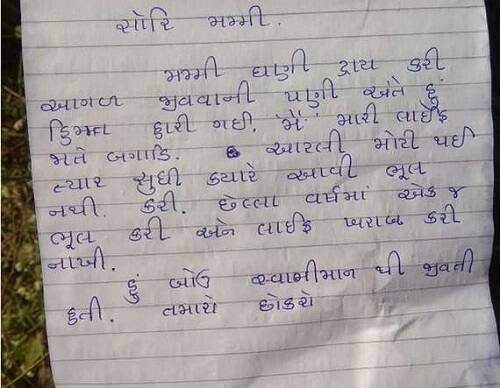 સોરિ મમ્મી.
મમ્મી ઘણી ટ્રાય કરી
આગળ જીવવાની પણી અંતે હું
હિમ્મત હારી ગઈ. "મેં" મારી લાઈફ
મતે બગાડિ. આટલી મોટી થઈ
ત્યાર સુધી ક્યારે આવી ભૂલ
નથી કરી. છેલ્લા વર્ષમાં એક જ
ભૂલ કરી એને લાઈફ ખરાબ કરી
નાખી.
હું બોઉ સ્વાભીમાન થી જીવતી
હતી. તમારો છોકરો